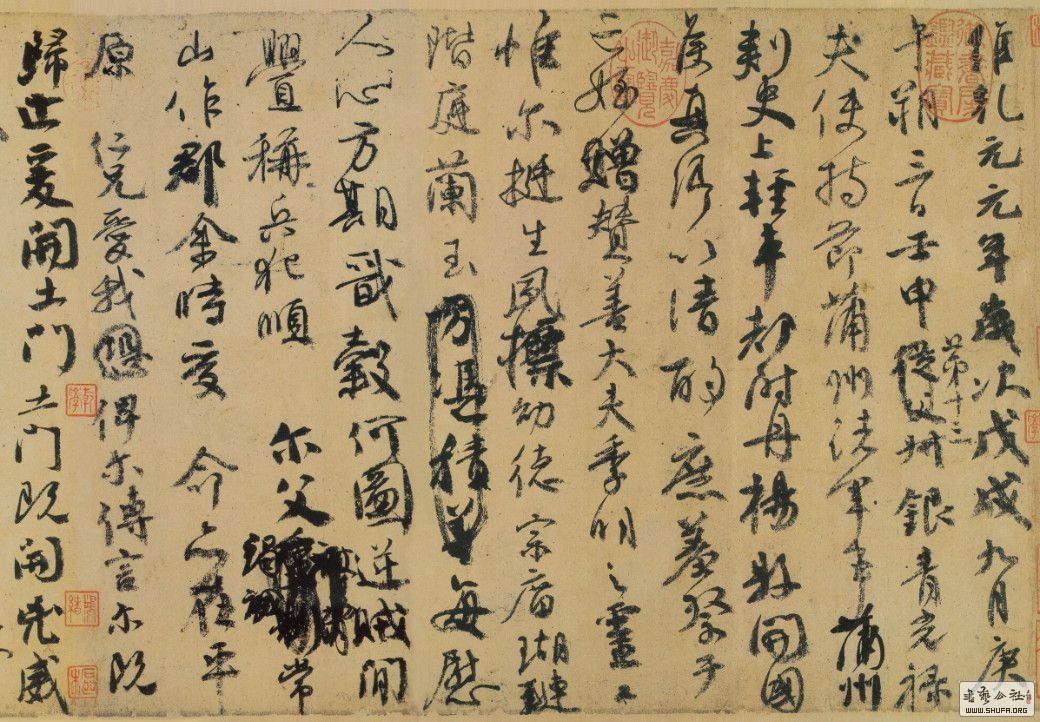 維乾元元年歲次戊戌九月庚
午朔三日壬申第十三叔銀青光祿
夫使持節蒲州諸軍事蒲州
刺史上輕車都尉丹楊縣開國
侯真卿以清酌庶羞祭于
亡姪贈贊善大夫季明之靈曰
惟尔挺生夙標幼德宗廟瑚璉
階庭蘭玉方憑積善每慰
人心方期戩穀何圖逆賊閒
釁稱兵犯順尔父竭誠常
山作郡余時受命亦在平
原仁兄愛我恐俾尔傳言尔既
歸止爰開土門土門既開凶威
書藝公社
WWW.SHUFA.ORG